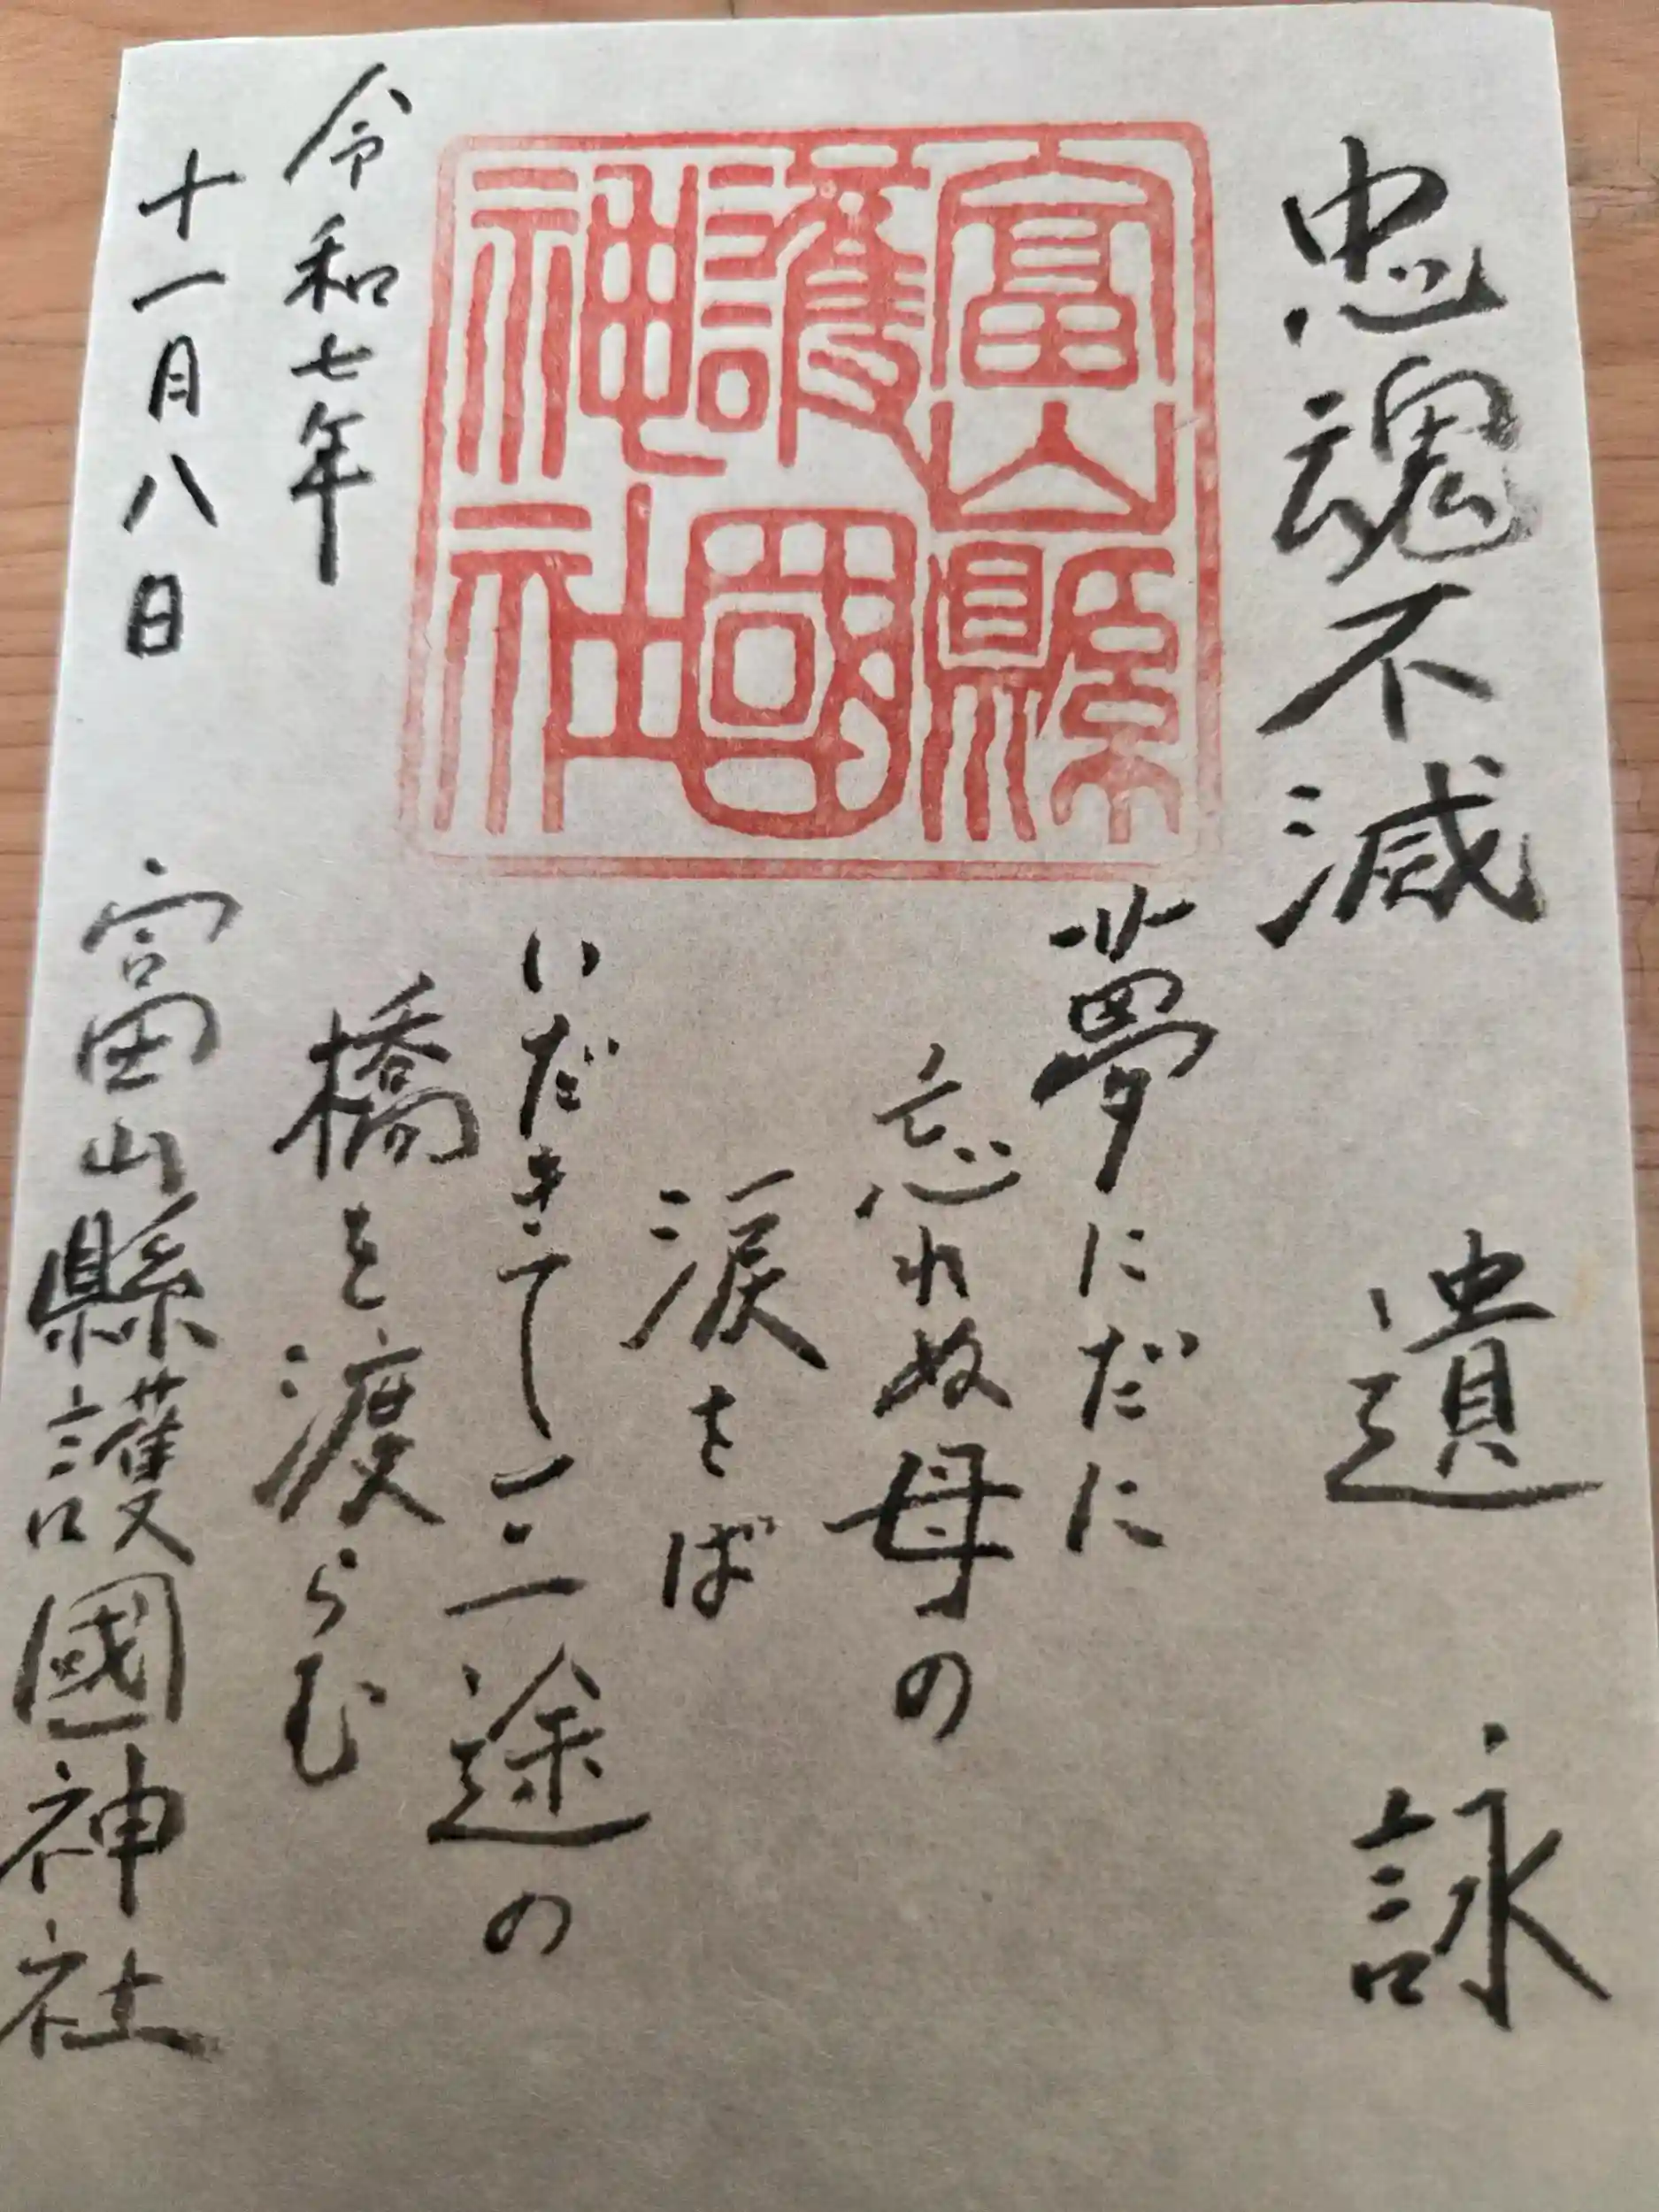 忠魂不滅 遺詠
富山縣
護國
神社
夢にだに
忘れぬ母の
涙をば
いだきて三途の
橋を渡らむ
令和七年
十一月八日
富山縣護國神社